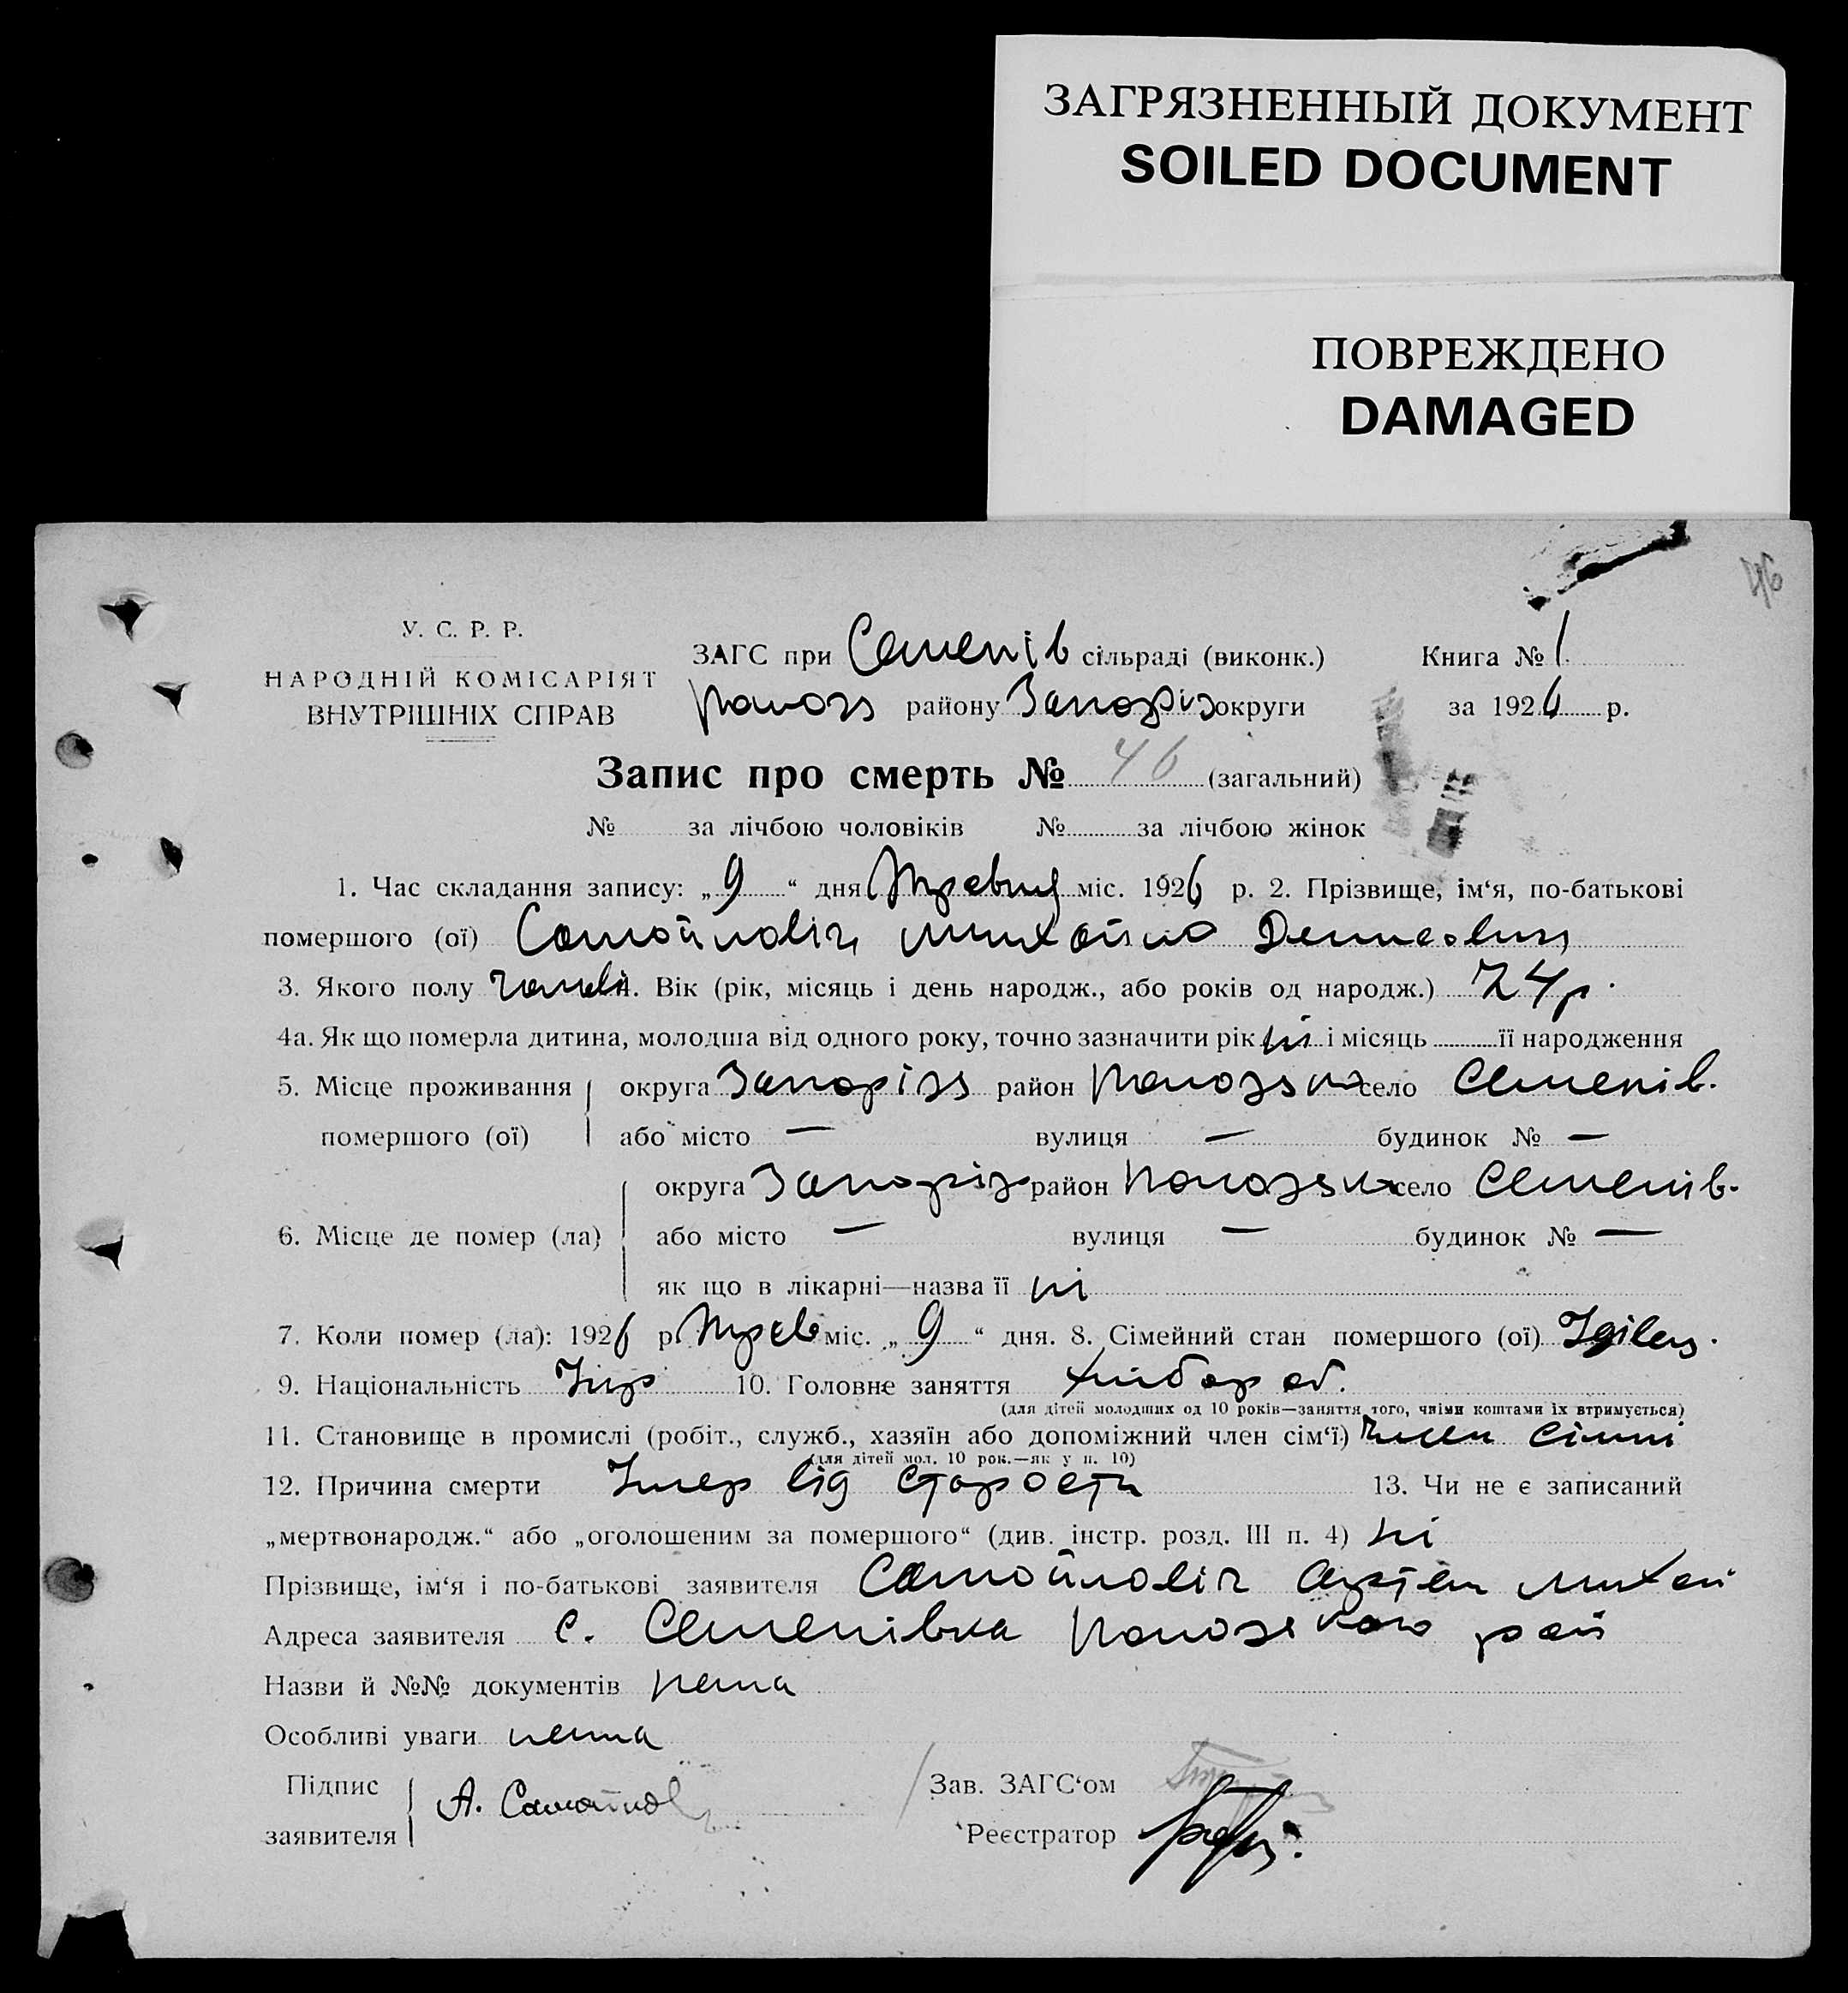 ЗАГРЯЗНЕННЫЙ ДОКУМЕНТ
SOILED DOCUMENT
ПОВРЕЖДЕНО
DAMAGED
46
У. С. Р. Р.
НАРОДНІЙ КОМІСАРІЯТ
ВНУТРІШНІХ СПРАВ
ЗАГС при Семенів сільраді (виконк.)
району Запоріз округи
Книга № 1
за 1926 р.
Запис про смерть № 46 (загальний)
№ за лічбою чоловіків № за лічбою жінок
1. Час складання запису: „ 9 “ дня Травня міс. 1926 р. 2. Прізвище, ім‘я, по-батькові
помершого (ої) Самойловіч Михайло
3. Якого полу чоловіч 4. Вік (рік, місяць і день народж., або років од народж.) 74 р.
4а. Як що померла дитина, молодша від одного року, точно зазначити рік ні і місяць її народження
5. Місце проживання помершого (ої)
округа Запорізь район село Семенів.
або місто — вулиця — будинок № —
6. Місце де помер (ла)
округа Запоріз район село Семенів.
або місто — вулиця — будинок № —
як що в лікарні—назва її ні
7. Коли помер (ла): 1926 р. Трав міс. „ 9 “ дня. 8. Сімейний стан помершого (ої) Удівець.
9. Національність Укр 10. Головне заняття хлібороб.
(для дітей молодших од 10 років—заняття того, чиїми коштами їх втримується)
11. Становище в промислі (робіт., служб., хазяїн або допоміжний член сім‘ї) член сімні
(для дітей мол. 10 рок.—як у п. 10)
12. Причина смерти Умер від старости 13. Чи не є записаний
„мертвонародж.“ або „оголошеним за помершого“ (див. інстр. розд. III п. 4) ні
Прізвище, ім‘я і по-батькові заявителя Самойловіч Артем Михай
Адреса заявителя с. Семенівка рай
Назви й №№ документів нема
Особливі уваги нема
Підпис заявителя А. Самойлов
Зав. ЗАГС‘ом
Реєстратор